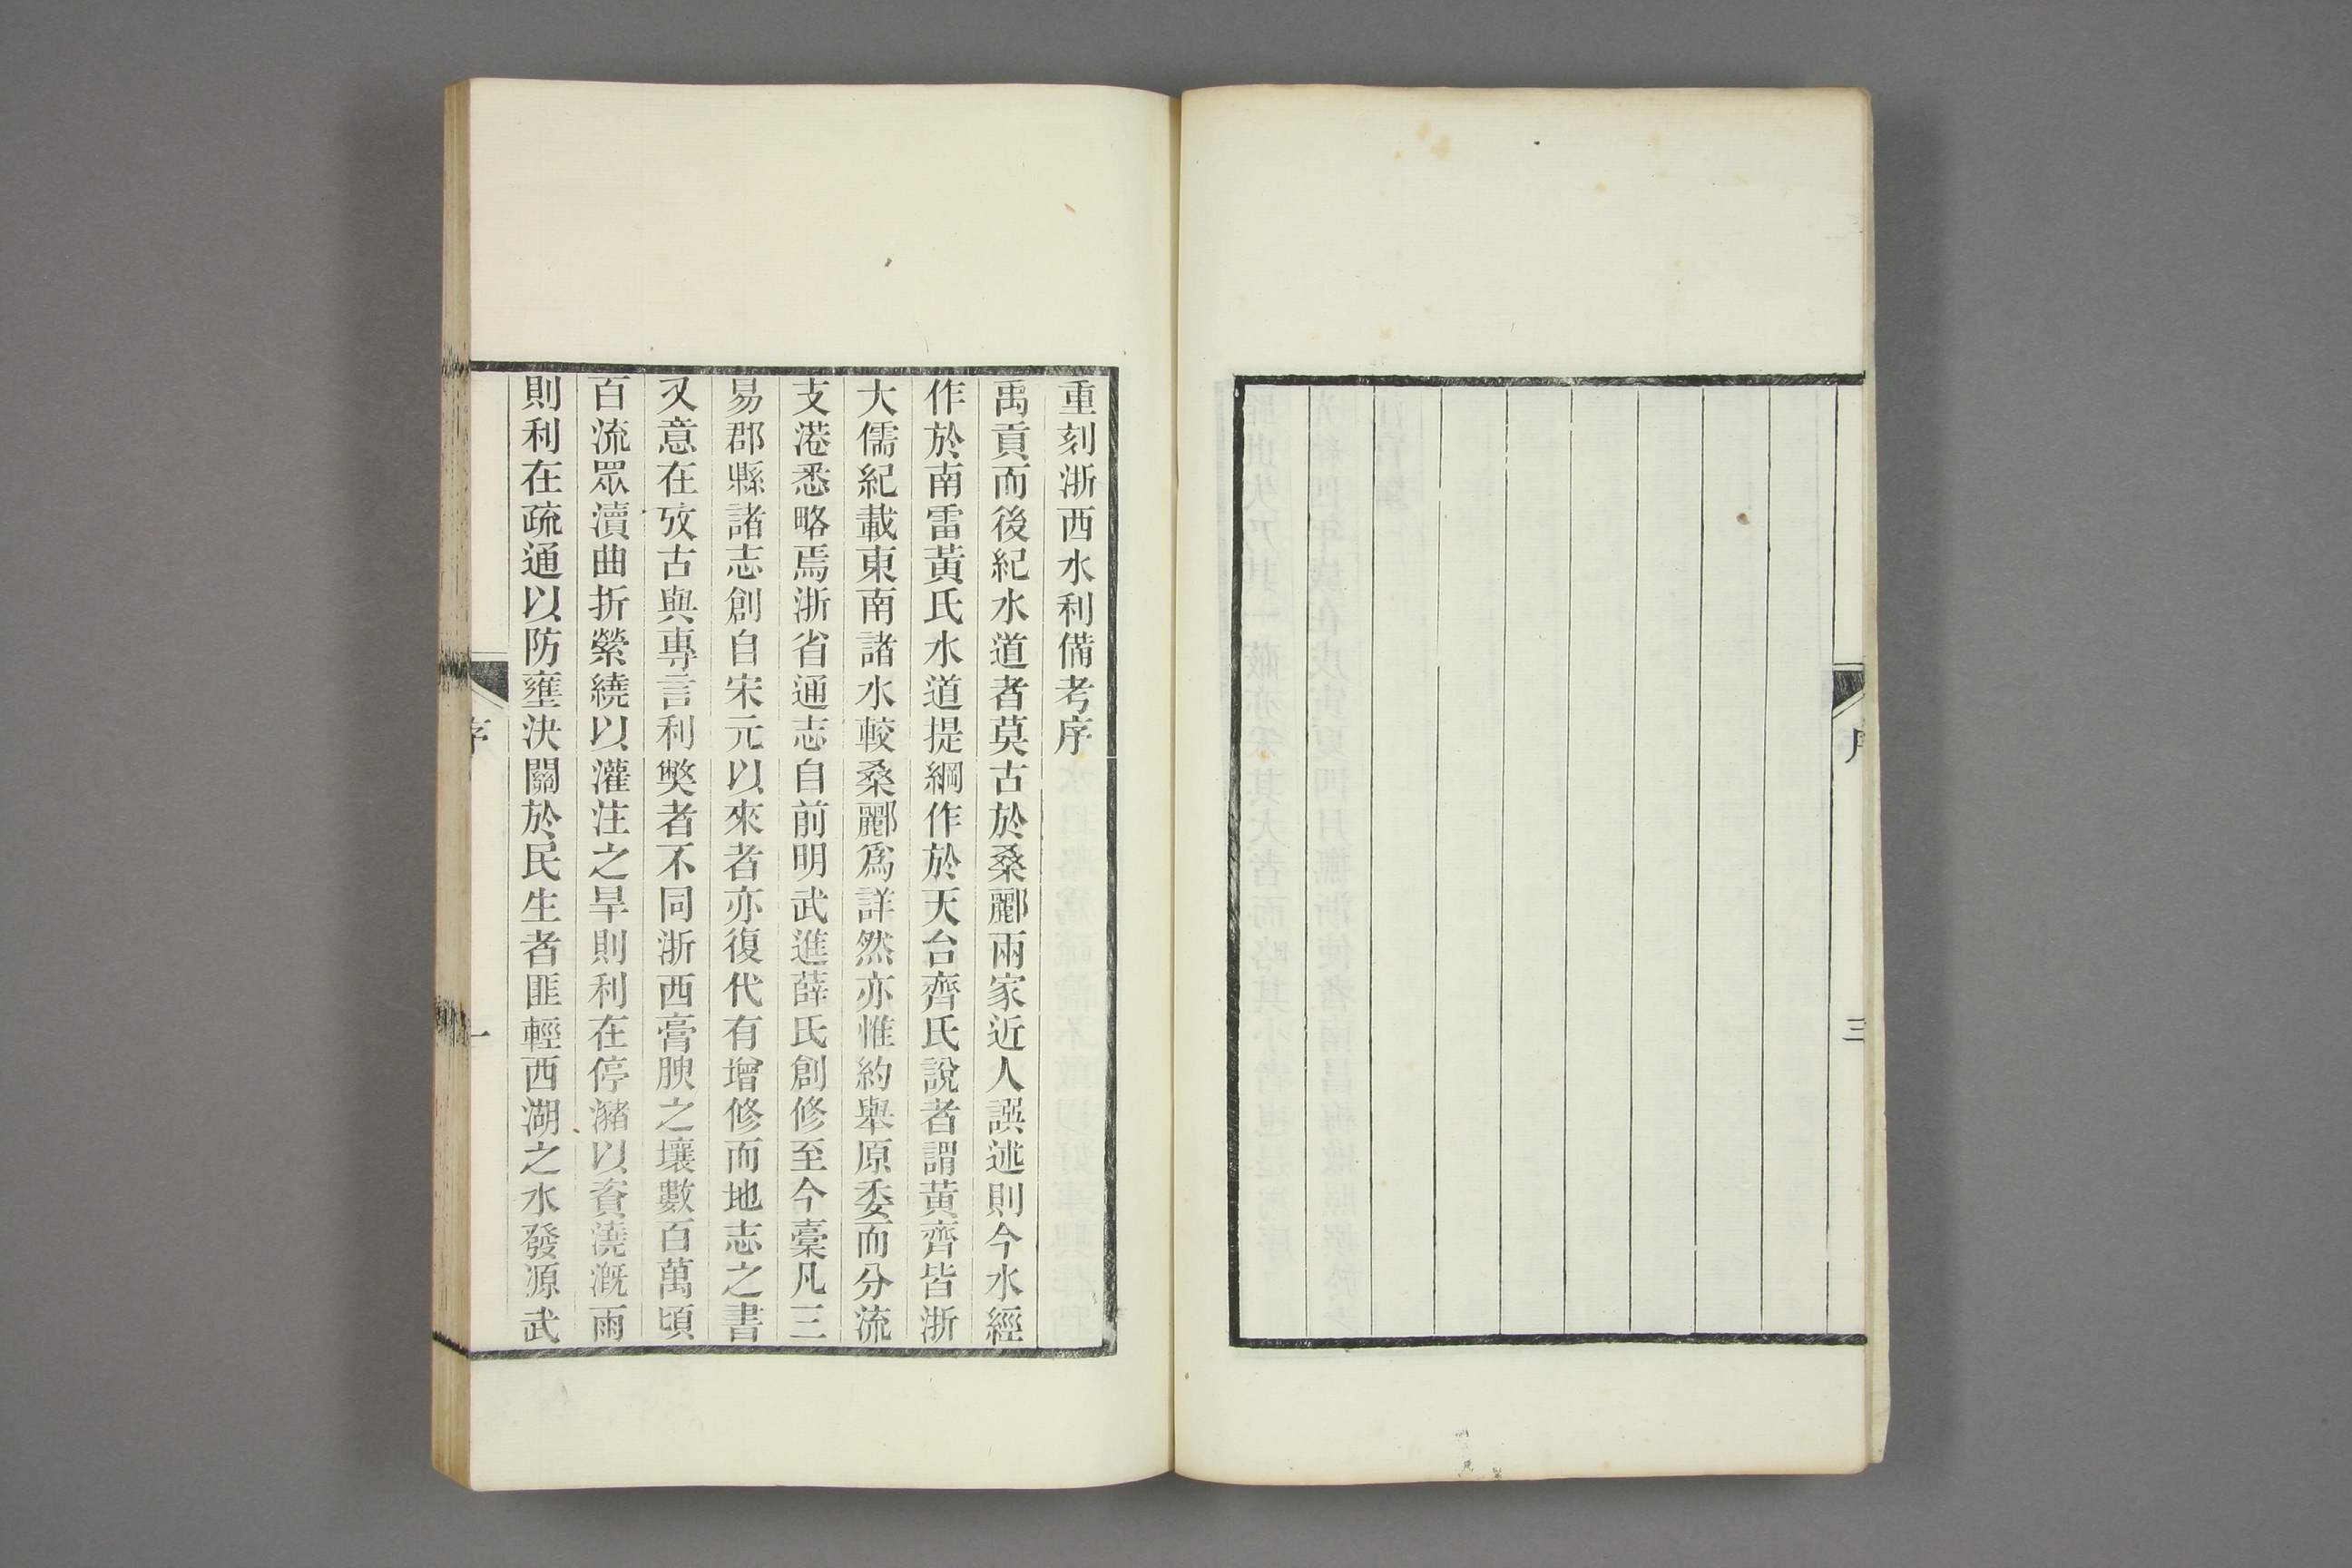 三
重刻浙西水利備考序
禹貢而後紀水道者莫古於桑酈兩家近人譔述則今水經
作於南雷黃氏水道提綱作於天台齊氏說者謂黃齊皆浙
大儒紀載東南諸水較桑酈爲詳然亦惟約舉原委而分流
支港悉略焉浙省通志自前明武進薛氏創修至今稾凡三
易郡縣諸志創自宋元以來者亦復代有增修而地志之書
又意在攷古與專言利獘者不同浙西膏腴之壤數百萬頃
百流眾瀆曲折縈繞以灌注之旱則利在停瀦以資澆溉雨
則利在疏通以防壅決關於民生者匪輕西湖之水發源武
序
一